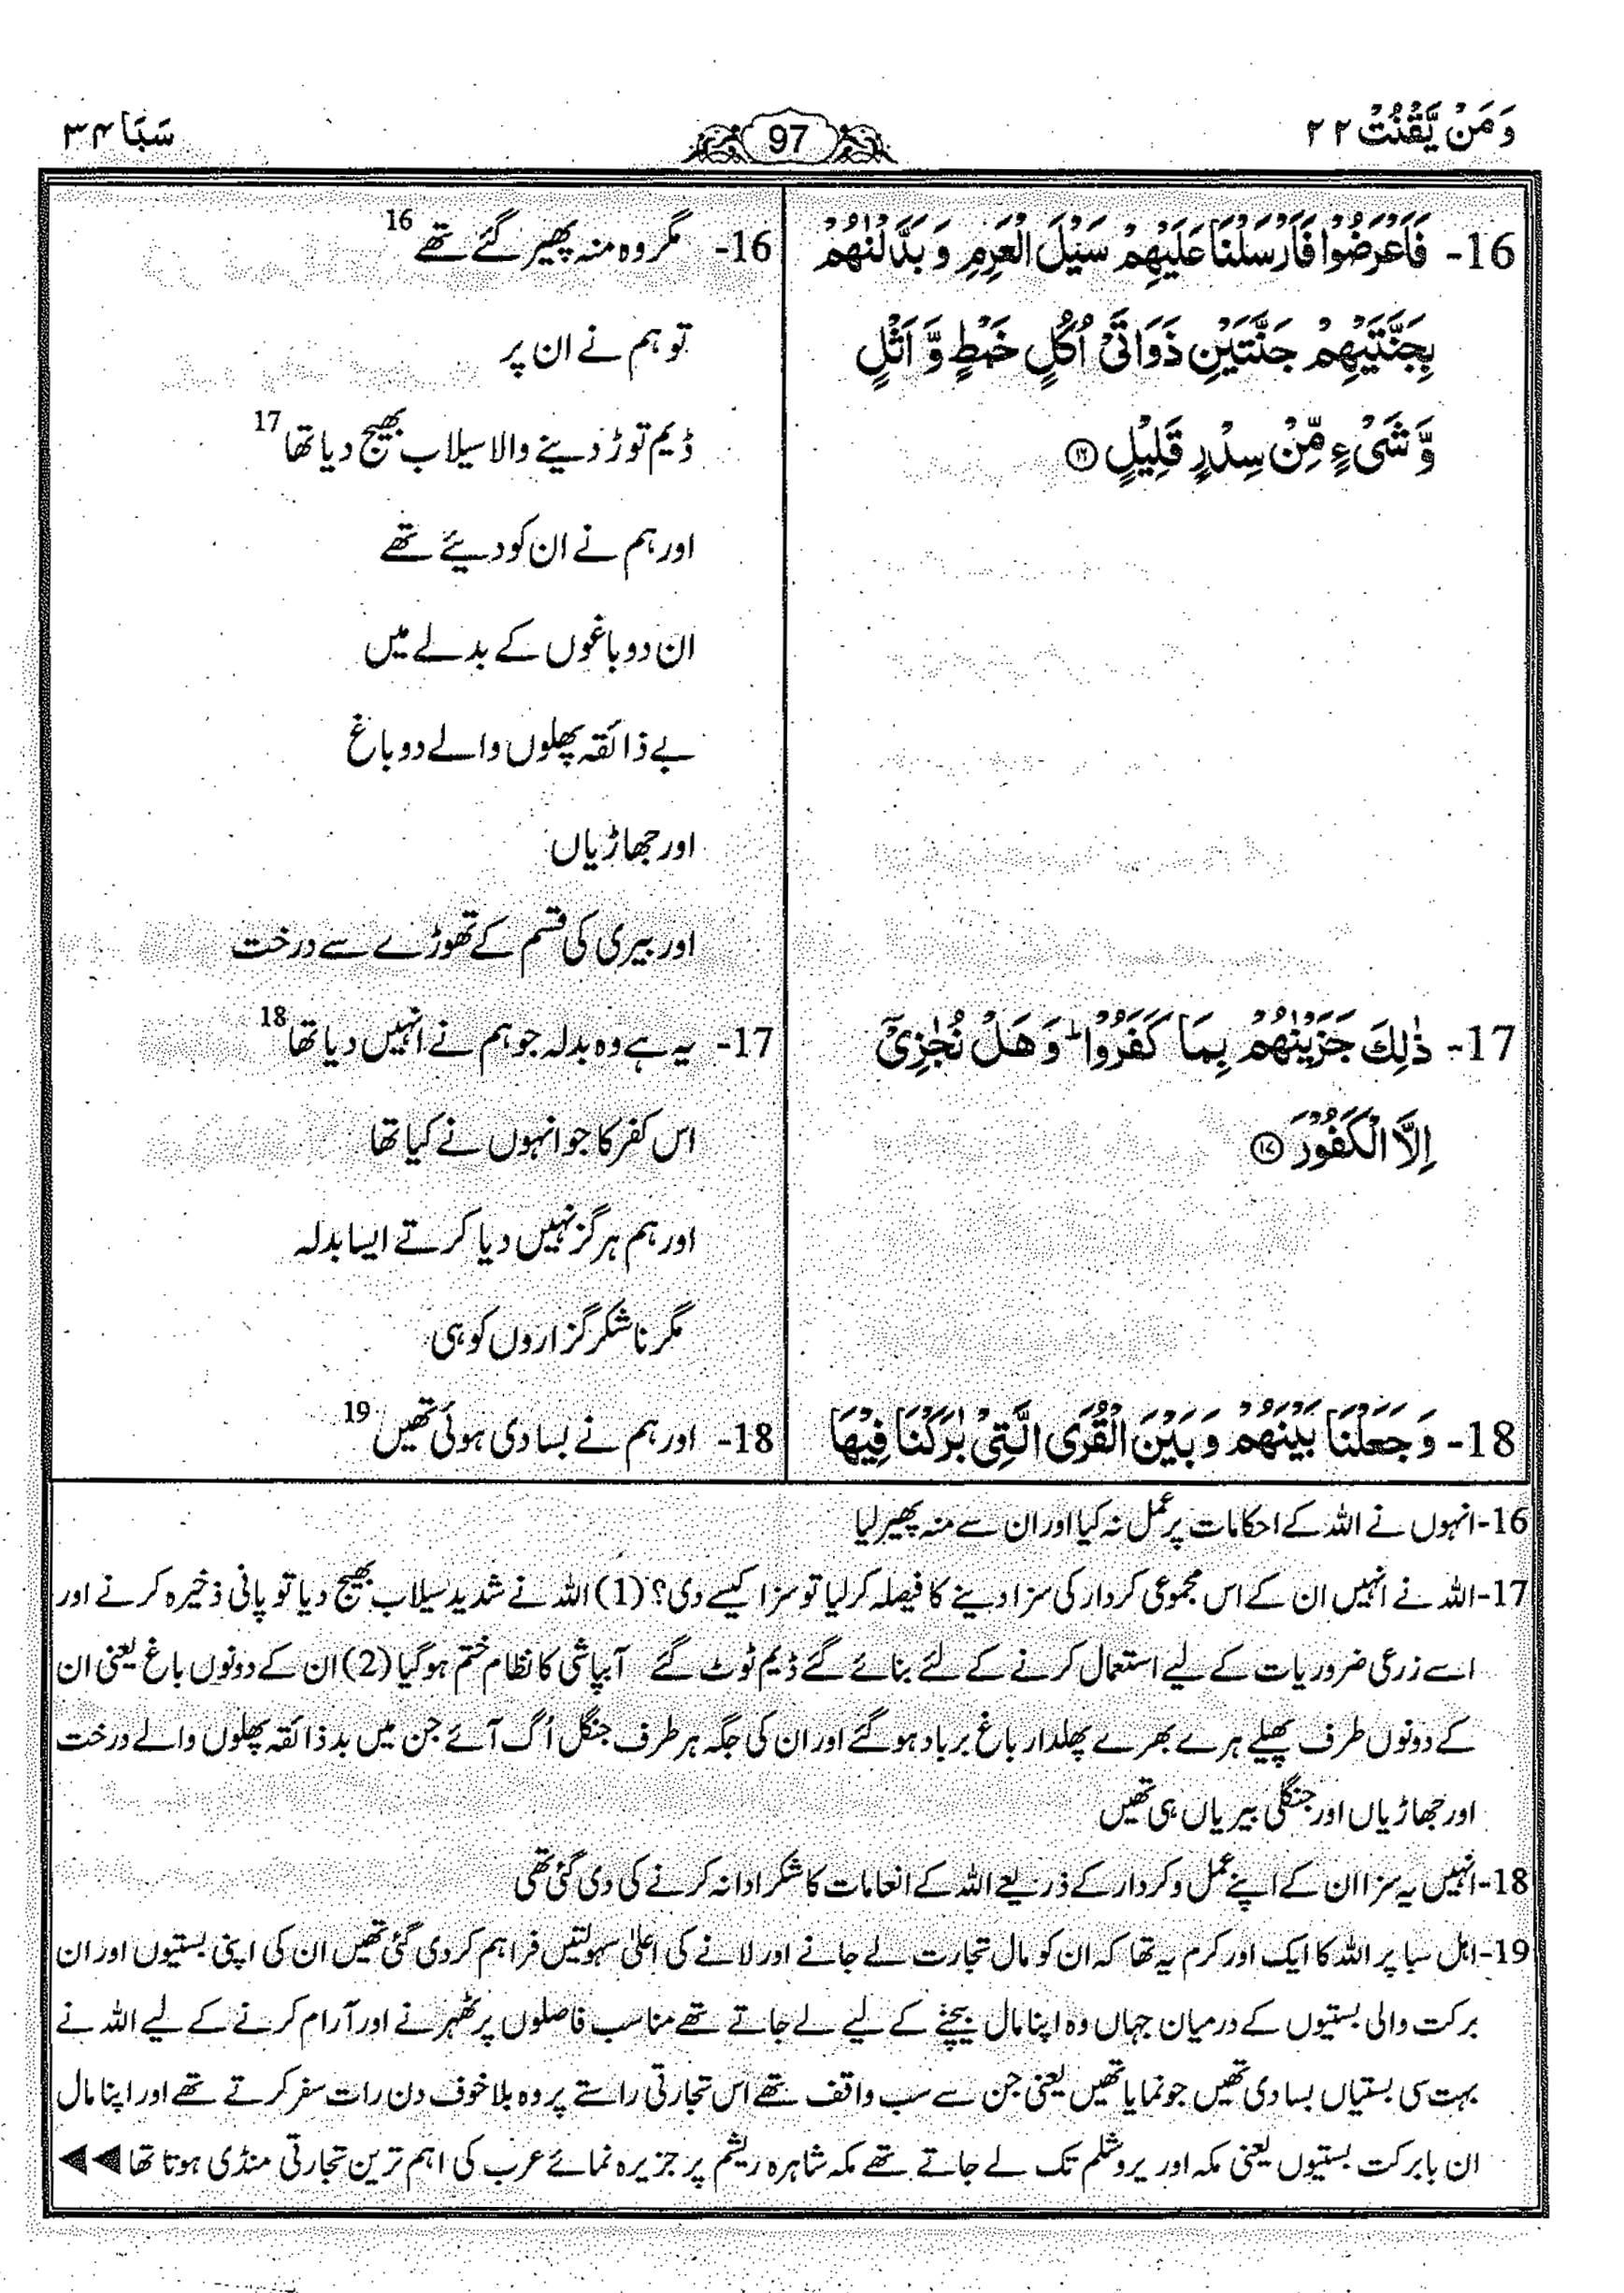 وَمَنْ يَّقْنُتْ ۲۲
97
سَبَا ۳۴
16- فَاَعْرَضُوْا فَاَرْسَلْنَا عَلَيْهِمْ سَيْلَ الْعَرِمِ وَ بَدَّلْنٰهُمْ
بِجَنَّتَيْهِمْ جَنَّتَيْنِ ذَوَاتَیْ اُكُلٍ خَمْطٍ وَّ اَثْلٍ
وَّ شَیْءٍ مِّنْ سِدْرٍ قَلِيْلٍ ⑯
17- ذٰلِكَ جَزَيْنٰهُمْ بِمَا كَفَرُوْا ؕ وَ هَلْ نُجٰزِیْۤ
اِلَّا الْكَفُوْرَ ⑰
18- وَ جَعَلْنَا بَيْنَهُمْ وَ بَيْنَ الْقُرَی الَّتِیْ بٰرَكْنَا فِيْهَا
16- مگر وہ منہ پھیر گئے تھے 16
تو ہم نے ان پر
ڈیم توڑ دینے والا سیلاب بھیج دیا تھا 17
اور ہم نے ان کو دیئے تھے
ان دو باغوں کے بدلے میں
بے ذائقہ پھلوں والے دو باغ
اور جھاڑیاں
اور بیری کی قسم کے تھوڑے سے درخت
17- یہ ہے وہ بدلہ جو ہم نے انہیں دیا تھا 18
اس کفر کا جو انہوں نے کیا تھا
اور ہم ہرگز نہیں دیا کرتے ایسا بدلہ
مگر ناشکر گزاروں کو ہی
18- اور ہم نے بسا دی ہوئی تھیں 19
16-انہوں نے اللہ کے احکامات پر عمل نہ کیا اور ان سے منہ پھیر لیا
17-اللہ نے انہیں ان کے اس مجموعی کردار کی سزا دینے کا فیصلہ کر لیا تو سزا کیسے دی؟ (1) اللہ نے شدید سیلاب بھیج دیا تو پانی ذخیرہ کرنے اور
اسے زرعی ضروریات کے لیے استعمال کرنے کے لئے بنائے گئے ڈیم ٹوٹ گئے آبپاشی کا نظام ختم ہو گیا (2) ان کے دونوں باغ یعنی ان
کے دونوں طرف پھیلے ہرے بھرے پھلدار باغ برباد ہو گئے اور ان کی جگہ ہر طرف جنگل اُگ آئے جن میں بد ذائقہ پھلوں والے درخت
اور جھاڑیاں اور جنگلی بیریاں ہی تھیں
18-انہیں یہ سزا ان کے اپنے عمل و کردار کے ذریعے اللہ کے انعامات کا شکر ادا نہ کرنے کی دی گئی تھی
19-اہل سبا پر اللہ کا ایک اور کرم یہ تھا کہ ان کو مال تجارت لے جانے اور لانے کی اعلیٰ سہولتیں فراہم کر دی گئی تھیں ان کی اپنی بستیوں اور ان
برکت والی بستیوں کے درمیان جہاں وہ اپنا مال بیچنے کے لیے لے جاتے تھے مناسب فاصلوں پر ٹھہرنے اور آرام کرنے کے لیے اللہ نے
بہت سی بستیاں بسا دی تھیں جو نمایا تھیں یعنی جن سے سب واقف تھے اس تجارتی راستے پر وہ بلا خوف دن رات سفر کرتے تھے اور اپنا مال
ان بابرکت بستیوں یعنی مکہ اور یروشلم تک لے جاتے تھے مکہ شاہرہ ریشم پر جزیرہ نمائے عرب کی اہم ترین تجارتی منڈی ہوتا تھا ◀◀